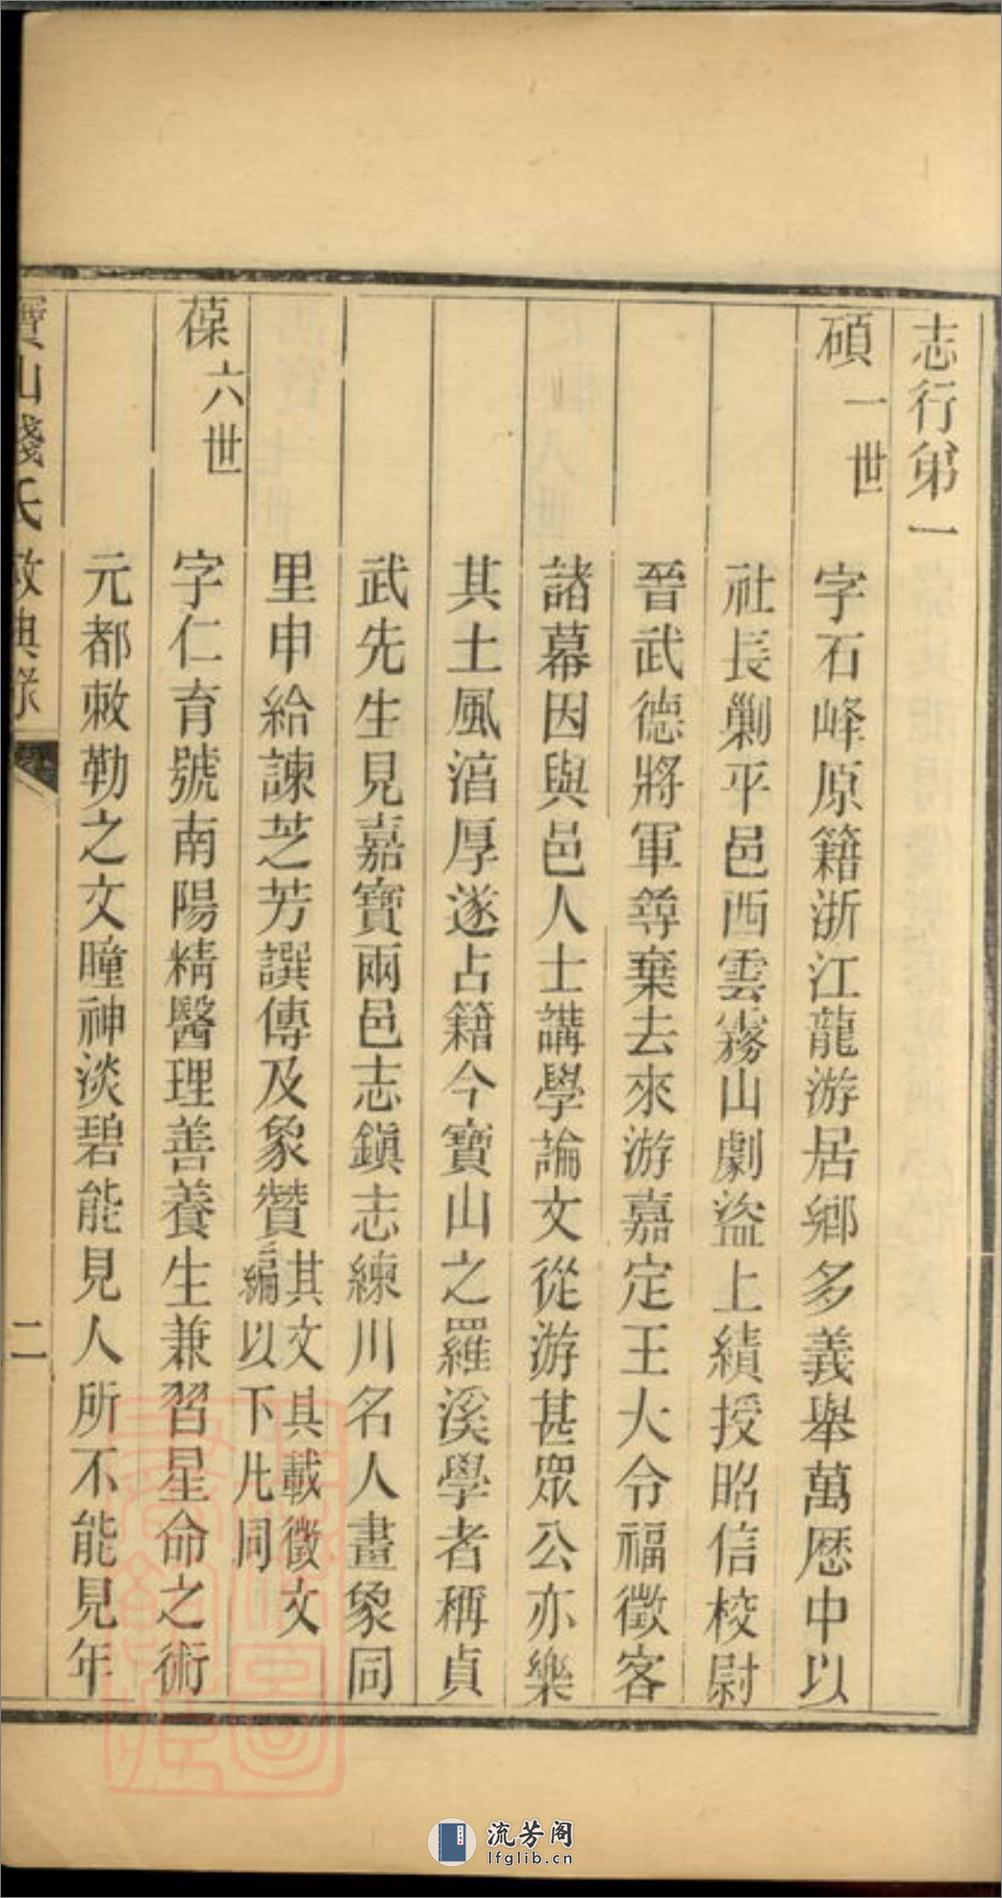 志行弟一
碩 一世 字石峰原籍浙江龍游居鄉多義舉萬厯中以
社長剿平邑西雲霧山劇盜上績授昭信校尉
晉武德將軍尊棄去來游嘉定王大令福徵客
諸幕因與邑人士講學論文從游甚眾公亦樂
其土風湻厚遂占籍今寶山之羅溪學者稱貞
武先生見嘉寶兩邑志鎮志練川名人畫象同
里申給諫芝芳譔傳及象贊其文具載徵文
編以下凡同
葆 六世 字仁育號南陽精醫理善養生兼習星命之術
元都敕勒之文瞳神淡碧能見人所不能見年
寶山錢氏
二
流芳阁
lfglib.cn